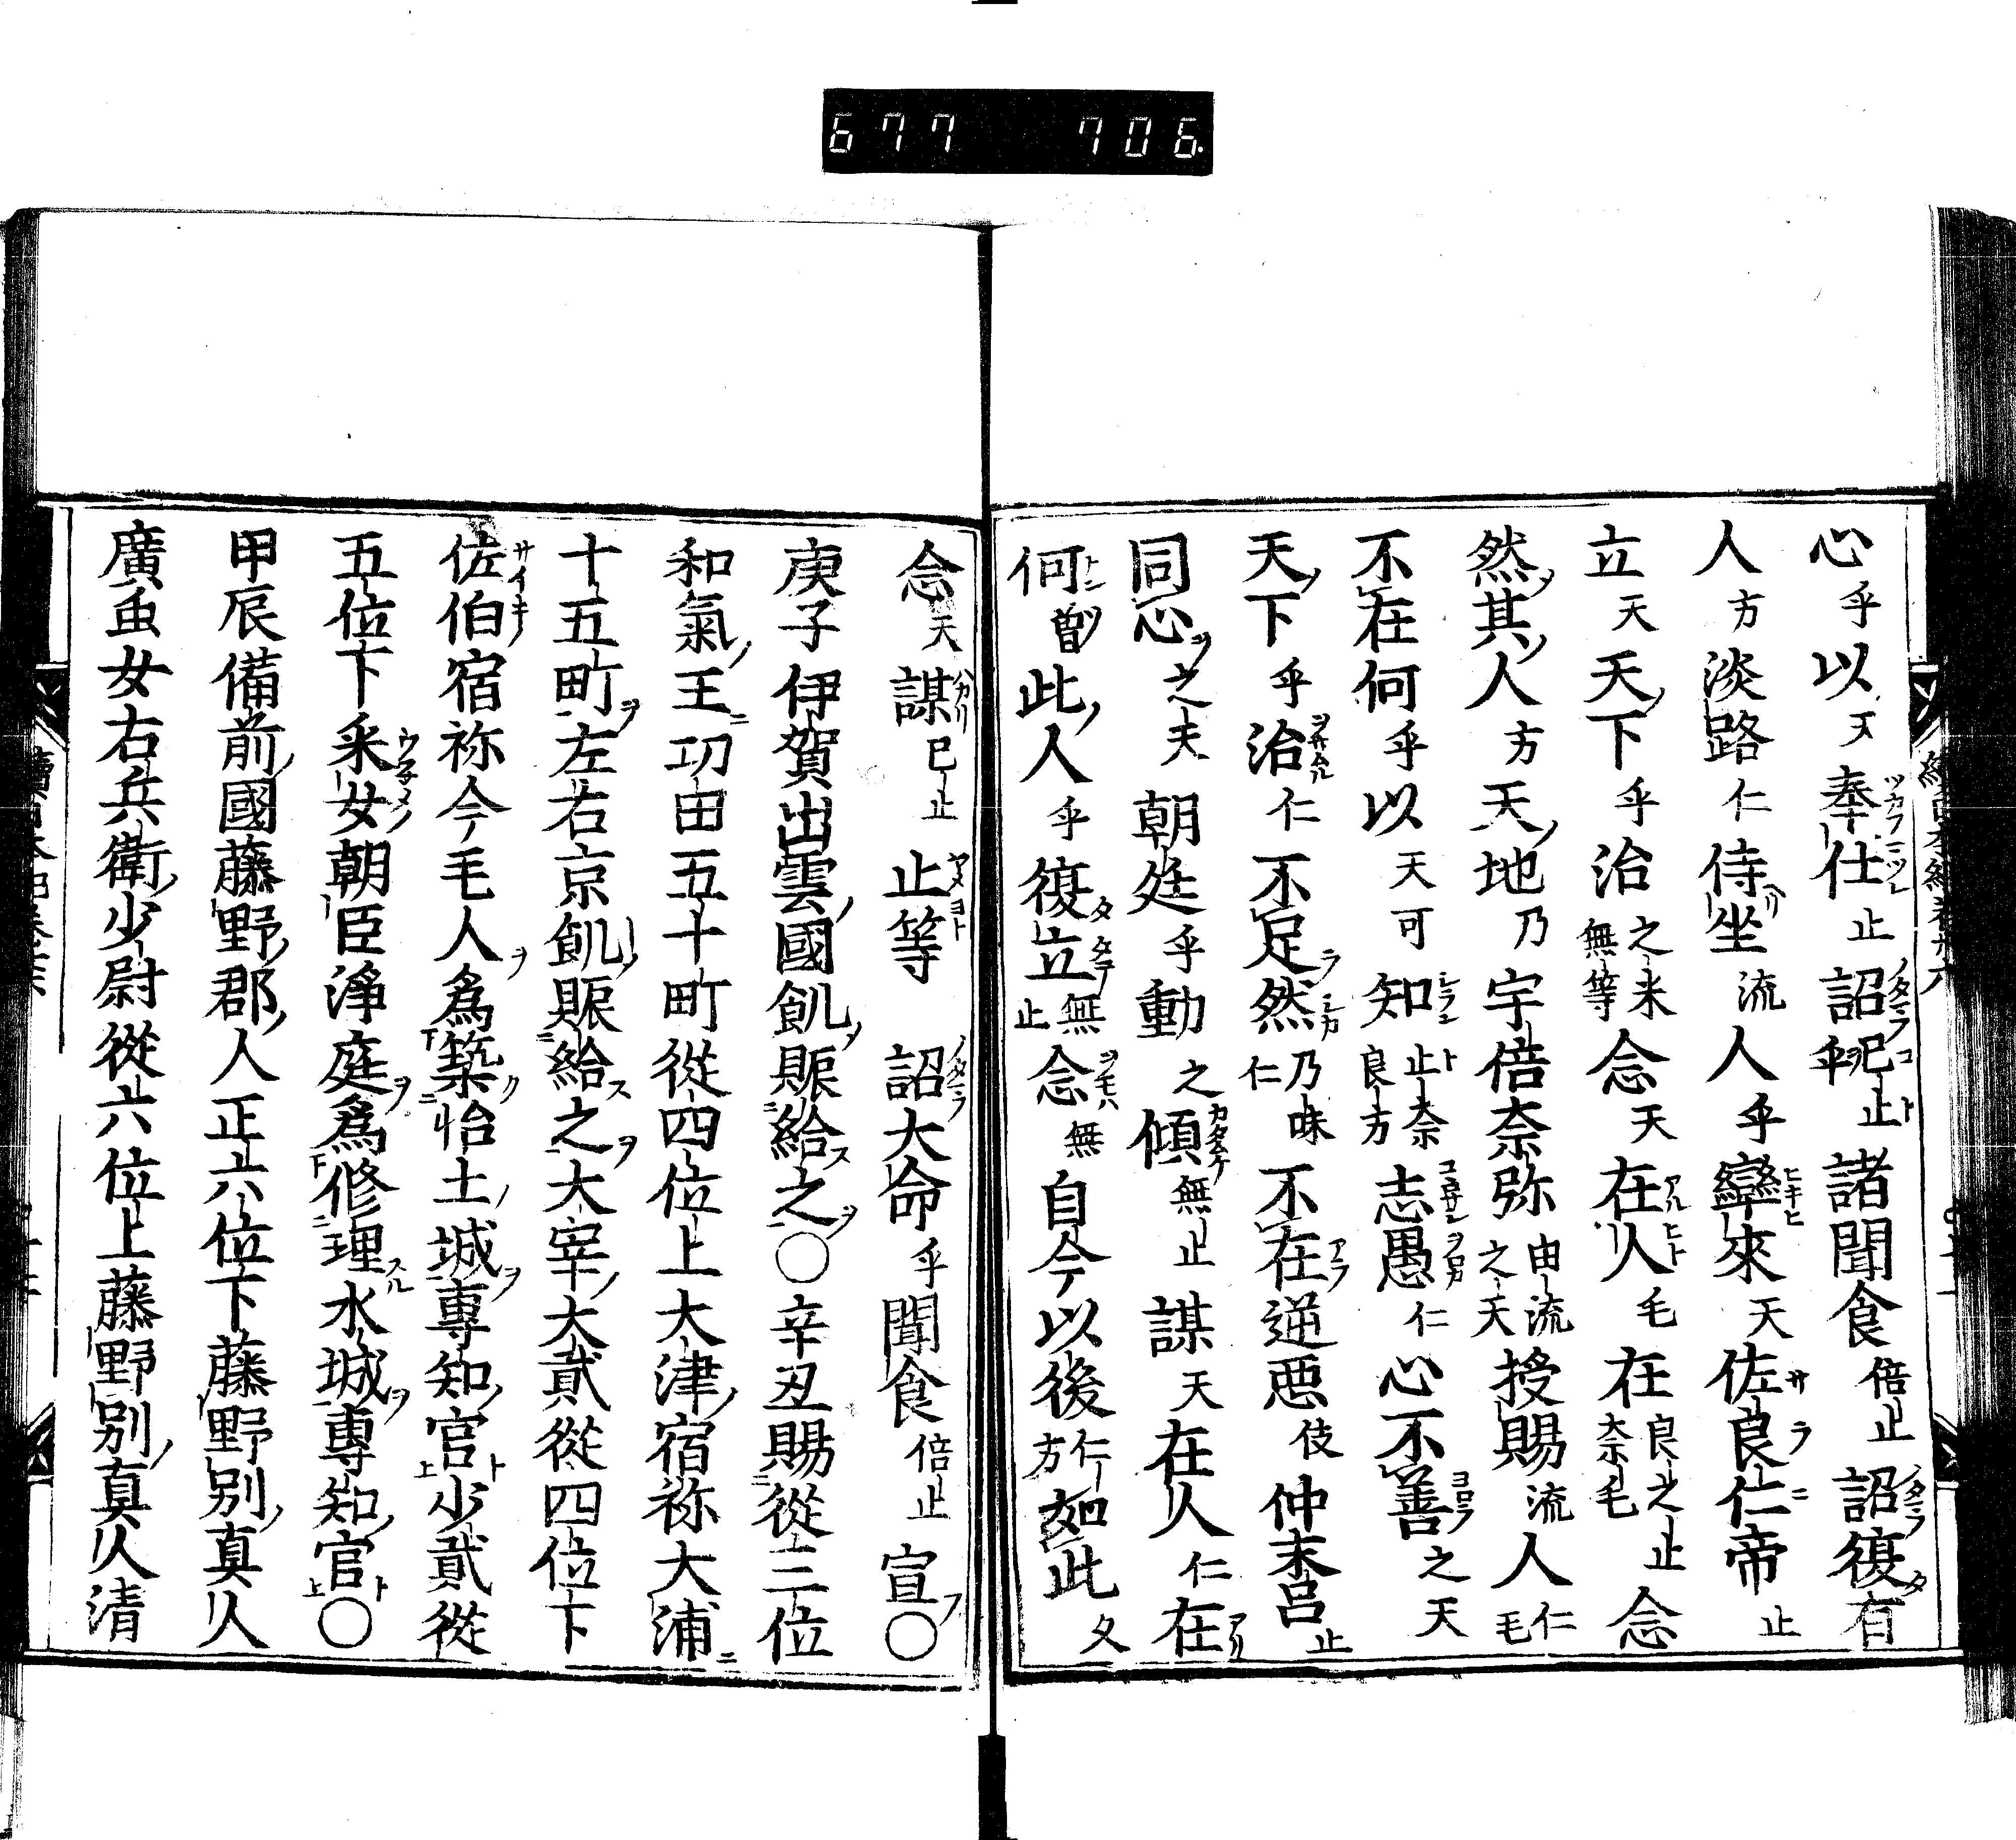 677 706
心乎以天奉仕止詔乎止諸聞食倍止詔復有
人方淡路仁侍坐流人乎率來天佐良仁帝止
立天天下乎治之米無等念天在人毛在良之止奈毛念
然其人方天地乃宇倍奈弥由流之天授賜流人仁毛
不在何乎以天可知止奈良方志愚仁心不善之天
天下乎治仁不足然乃味仁不在逆惡伎仲末呂止
同心之天朝廷乎動之傾無止謀天在人仁在
何曽此人乎復立無止念無自今以後仁方如此久
念天謀已止止等詔大命乎聞食倍止宣○
庚子伊賀出雲國飢賑給之○辛丑賜從三位
和氣王功田五十町從四位上大津宿祢大浦
十五町左右京飢賑給之太宰大貳從四位下
佐伯宿祢今毛人爲築怡土城專知官少貳從
五位下釆女朝臣淨庭爲修理水城專知官○
甲辰備前國藤野郡人正六位下藤野別真人
廣虫女右兵衛少尉從六位上藤野別真人清